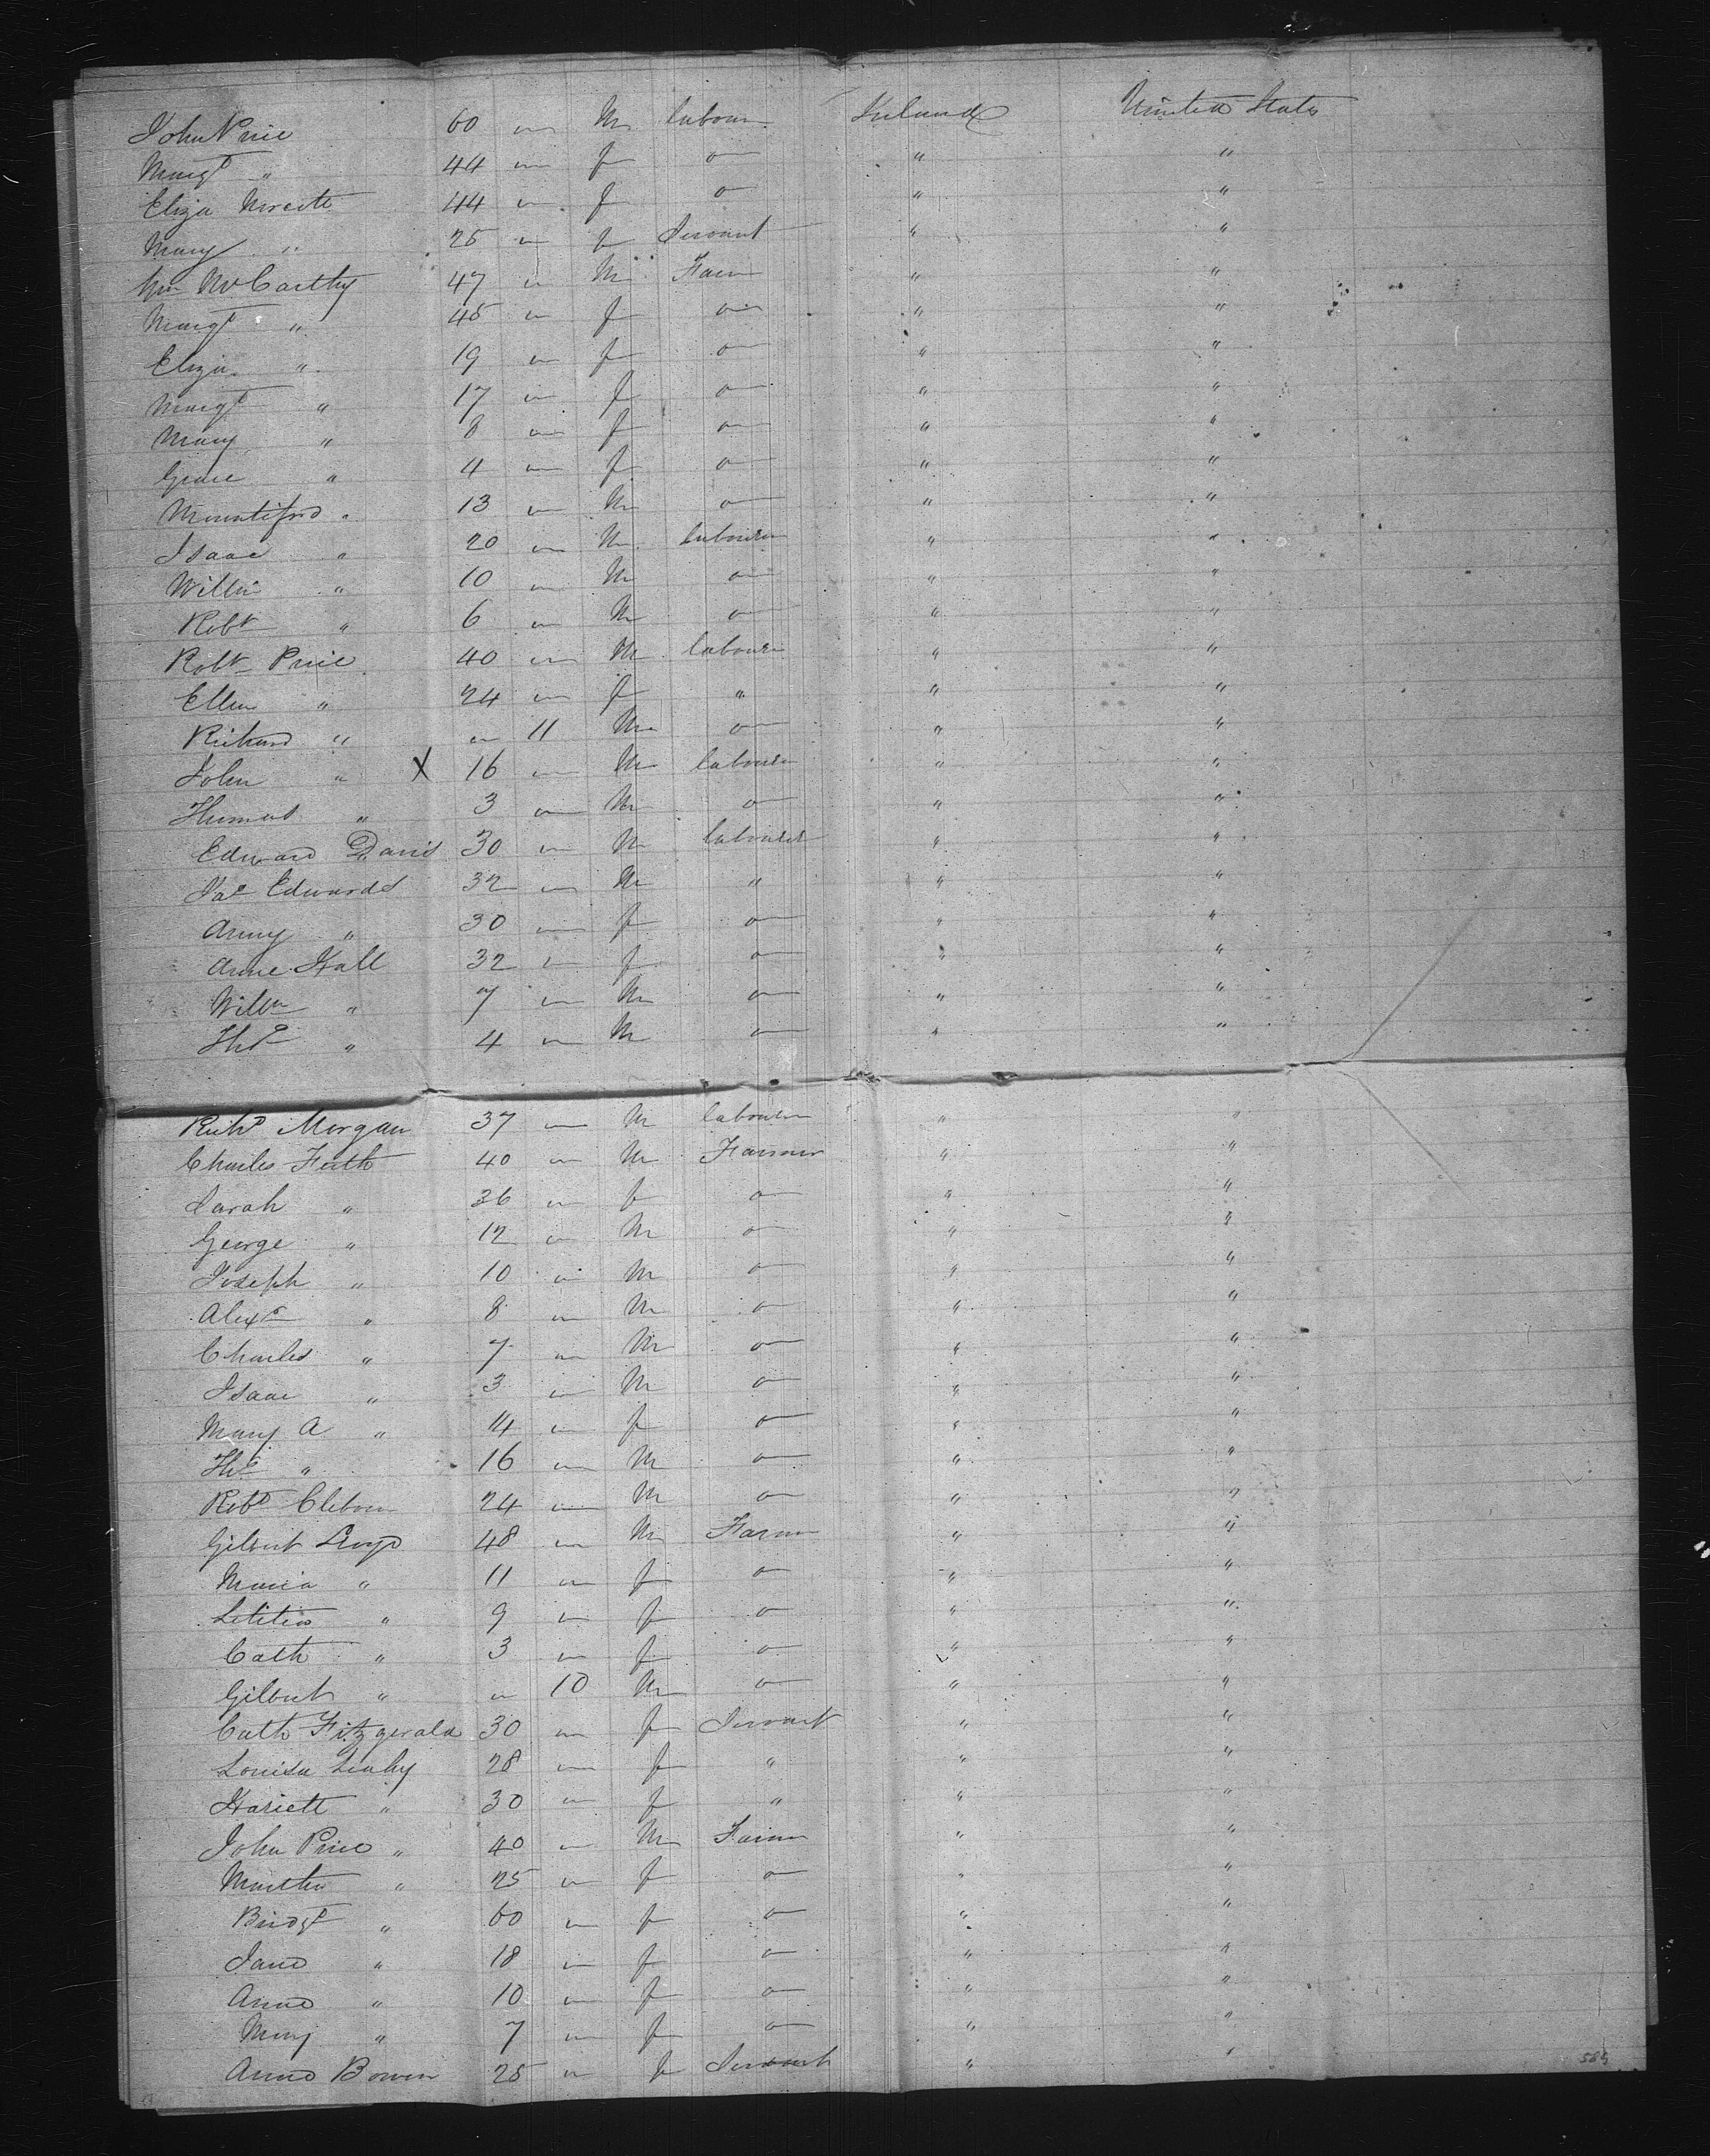 John Price 60 — M labourer Ireland United States
Margt " 44 — f — " "
Eliza 44 — f — " "
Mary " 25 — f Servant " "
Wm McCarthy 47 — M Farmer " "
Margt " 45 — f — " "
Eliza " 19 — f — " "
Margt " 17 — f — " "
Mary " 8 — f — " "
Grace " 4 — f — " "
Mountiford " 13 — M — " "
Isaac " 20 — M labourer " "
Willm " 10 — M — " "
Robt " 6 — M — " "
Robt Price 40 — M labourer " "
Ellen " 24 — f " " "
Richard " — 11 M — " "
John " X 16 — M labourer " "
Thomas " 3 — M — " "
Edward Davis 30 — M labourer " "
Jas Edwards 32 — M " " "
Anny " 30 — f — " "
Anne Hall 32 — f — " "
Willm " 7 — M — " "
Thos " 4 — M — " "
Richd Morgan 37 — M labourer " "
Charles 40 — M Farmer " "
Sarah " 36 — f — " "
George " 12 — M — " "
Joseph " 10 — M — " "
Alexr " 8 — M — " "
Charles " 7 — M — " "
Isaac " 3 — M — " "
Mary A " 14 — f — " "
Thos " 16 — M — " "
Robt Cleborn 24 — M — " "
Gilbert Lloyd 48 — M Farmer " "
Maria " 11 — f — " "
Letitia " 9 — f — " "
Cath " 3 — f — " "
Gilbert " — 10 M — " "
Cath Fitzgerald 30 — f Servant " "
Louisa Leahy 28 — f " " "
Hariett " 30 — f " " "
John Price " 40 — M Farmer " "
Martha " 25 — f — " "
Bridgt " 60 — f — " "
Jane " 18 — f — " "
Anne " 10 — f — " "
Mary " 7 — f — " "
Anne Bowen 25 — f Servant " "